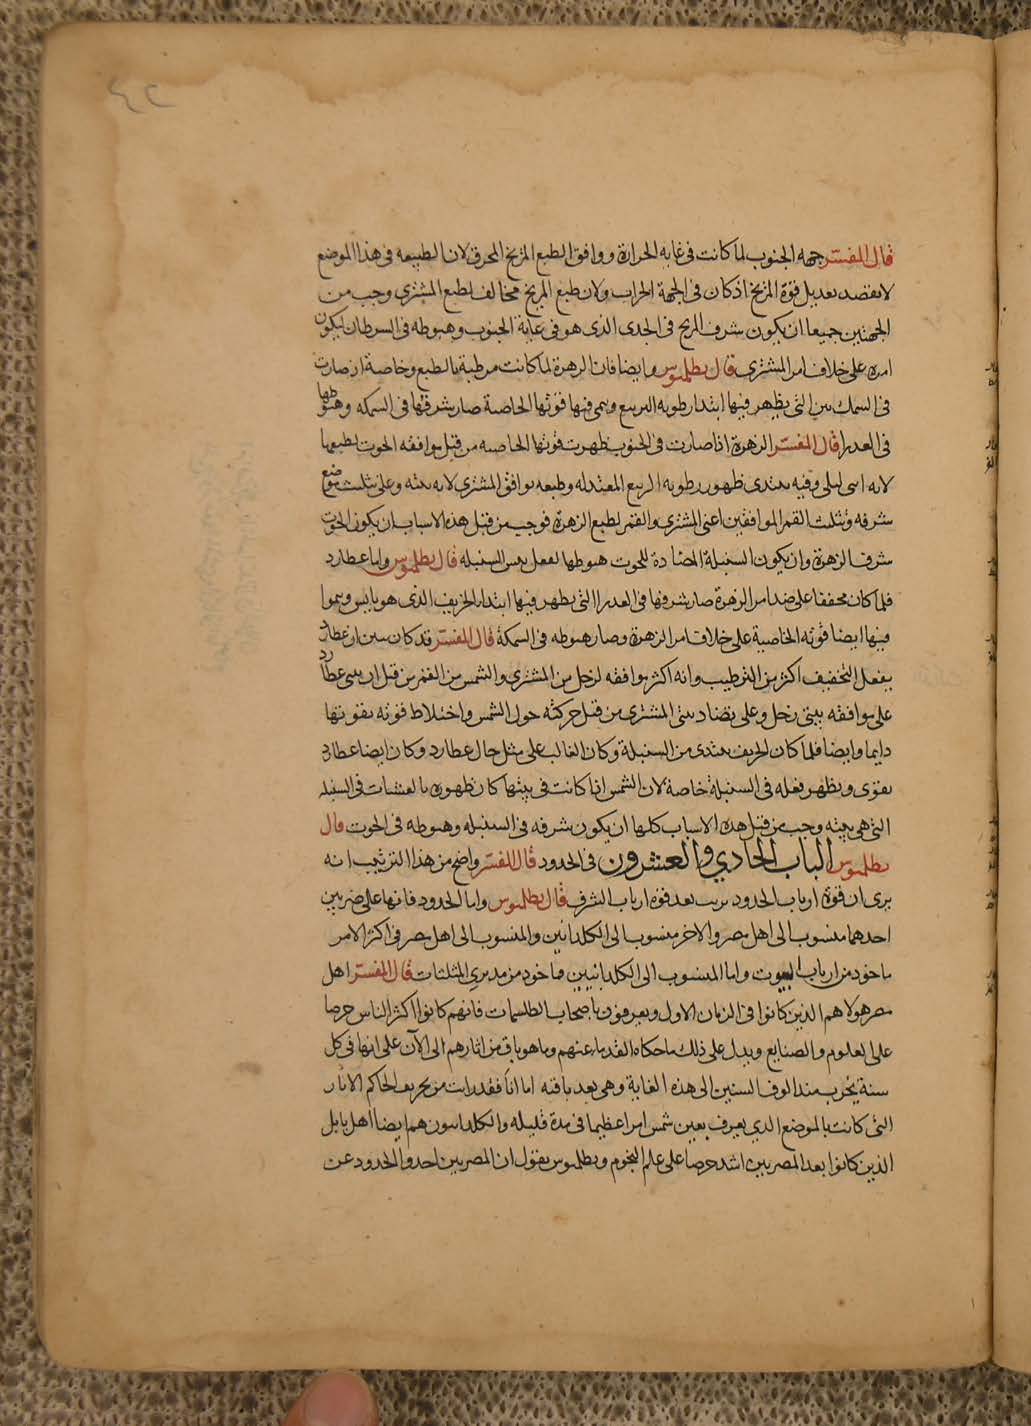 قال المفسر جهه الجنوب لما كانت فى غايه الحرارة ووافق الطبع المزيخ المحرق لان الطبيعه فى هذا الموضع
لا يقصد تعديل قوة المزيخ اذ كان فى الجهة الحراب ولان طبع المريخ مخالف لطبع المشترى وجب من
الجهتين جميعا ان يكون شرف المريخ فى الجدى الذى هو فى غاية الجنوب وهبوطه فى السرطان ليكون
امره على خلاف امر المشترى قال بطلميوس وايضا فان الزهرة لما كانت مرطبة بالطبع وخاصة ان صارت
فى السمكتين التى يظهر فيها ابتدا رطوبه الربيع وينمى فيها قوتها الخاصة صار شرفها فى السمكه وهبوطها
فى العدرا قال المفسر الزهرة اذا صارت فى الجنوب ظهرت قوتها الخاصه من قبل موافقه الحوت لطبعها
لانه انثى ليلى وفيه يبتدى ظهور رطوبه الربيع المعتدله وطبعه يوافق المشترى لانه بيته وعلى تثليث موضع
شرفه وتثليث القمر الموافقين اعنى المشترى والقمر لطبع الزهرة فوجب من قبل هذه الاسباب ان يكون الحوت
شرف الزهرة وان يكون السنبلة المضادة للحوت هبوطها لفعل يبس السنبله قال بطلميوس واما عطارد
فلما كان مجففا على ضد امر الزهرة صار شرفها فى العدرا التى يظهر فيها ابتدا الخريف الذى هو يابس وينموا
فيها ايضا قوته الخاصية على خلاف امر الزهرة وصار هبوطه فى السمكة قال المفسر قد كان بين ان عطارد
يفعل التجفيف اكثر من الترطيب وانه اكثر موافقه لزحل من المشترى والشمس من القمر من قبل ان بيتى عطارد
على موافقه بيتى زحل وعلى تضاد بيتى المشترى من قبل حركته حول الشمس واختلاط قوته بقوتها
دايما وايضا فلما كان الخريف يبتدى من السنبلة وكان الغالب على مثل حال عطارد وكان ايضا عطارد
يقوى ويظهر فعله فى السنبلة خاصة لان الشمس اذا كانت فى بيتها كان ظهوره بالعشيات فى السنبله
التى هى بيته وجب من قبل هذه الاسباب كلها ان يكون شرفه فى السنبله وهبوطه فى الحوت قال
بطلميوس الباب الحادي والعشرون فى الحدود قال المفسر واضح من هذا الترتيب انه
يرى ان قوة ارباب الحدود ترتب بعد قوة ارباب الشرف قال بطلميوس واما الحدود فانها على ضربين
احدهما منسوب الى اهل مصر والاخر منسوب الى الكلدانيين والمنسوب الى اهل مصر فى اكثر الامر
ماخود من ارباب البيوت واما المنسوب الى الكلدانيين فماخود من مدبرى المثلثات قال المفسر اهل
مصر هولا هم الذين كانوا فى الزمان الاول ويعرفون باصحاب الطلسمات فانهم كانوا اكثر الناس حرصا
على العلوم والصنايع ويدل على ذلك ما حكاه القدما عنهم وما هو باق من اثارهم الى الآن على انها فى كل
سنة يخرب منذ الوف السنين الى هذه الغاية وهى بعد باقنه اما انا فقد رايت من تخريب الحاكم الاثار
التى كانت بالموضع الذي يعرف بعين شمس امرا عظيما فى مدة قليله والكلدانيون هم ايضا اهل بابل
الذين كانوا بعد المصريين اشد حرصا على علم النجوم وبطلميوس يقول ان المصريين اخذوا الحدود عن